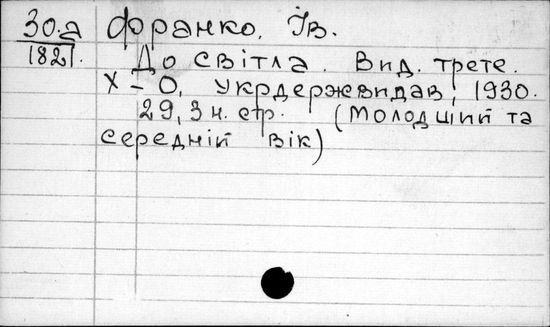 30.а Франко, Ів.
1821. До світла. Вид. трете.
Х-О, Укрдержвидав, 1930.
29, 3 н. стр. (Молодший та
середній вік)